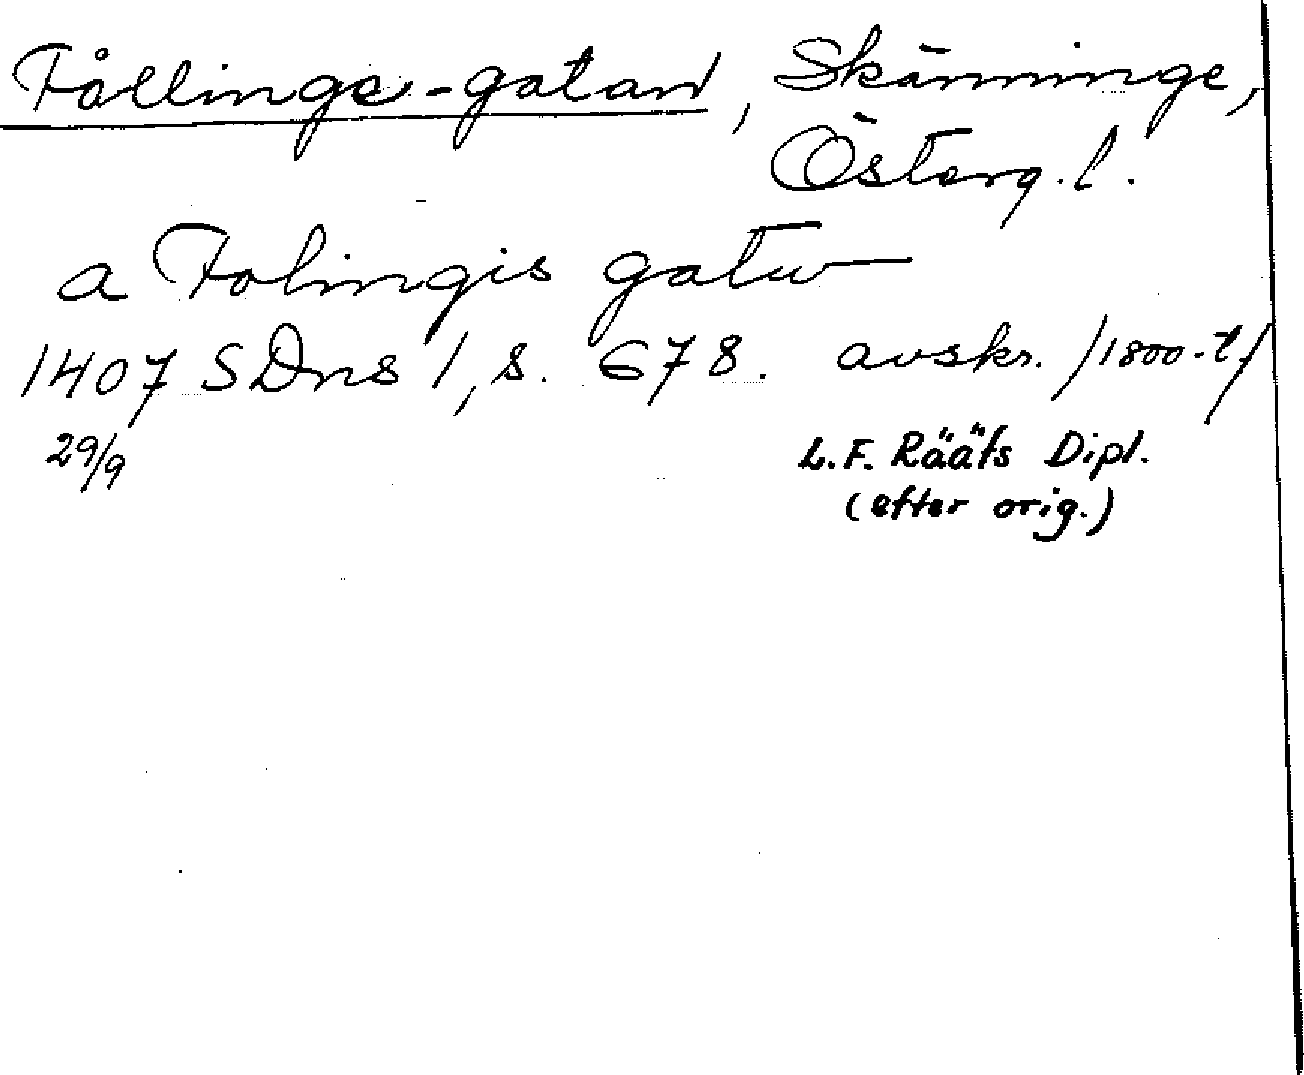 Fållinge-gatan, Skänninge,
Österg. l.
a Folingis gatw
1407 SDns 1, s. 678. avskr. /1800-t./
29/9 L.F. Rääfs Dipl.
(efter orig.)